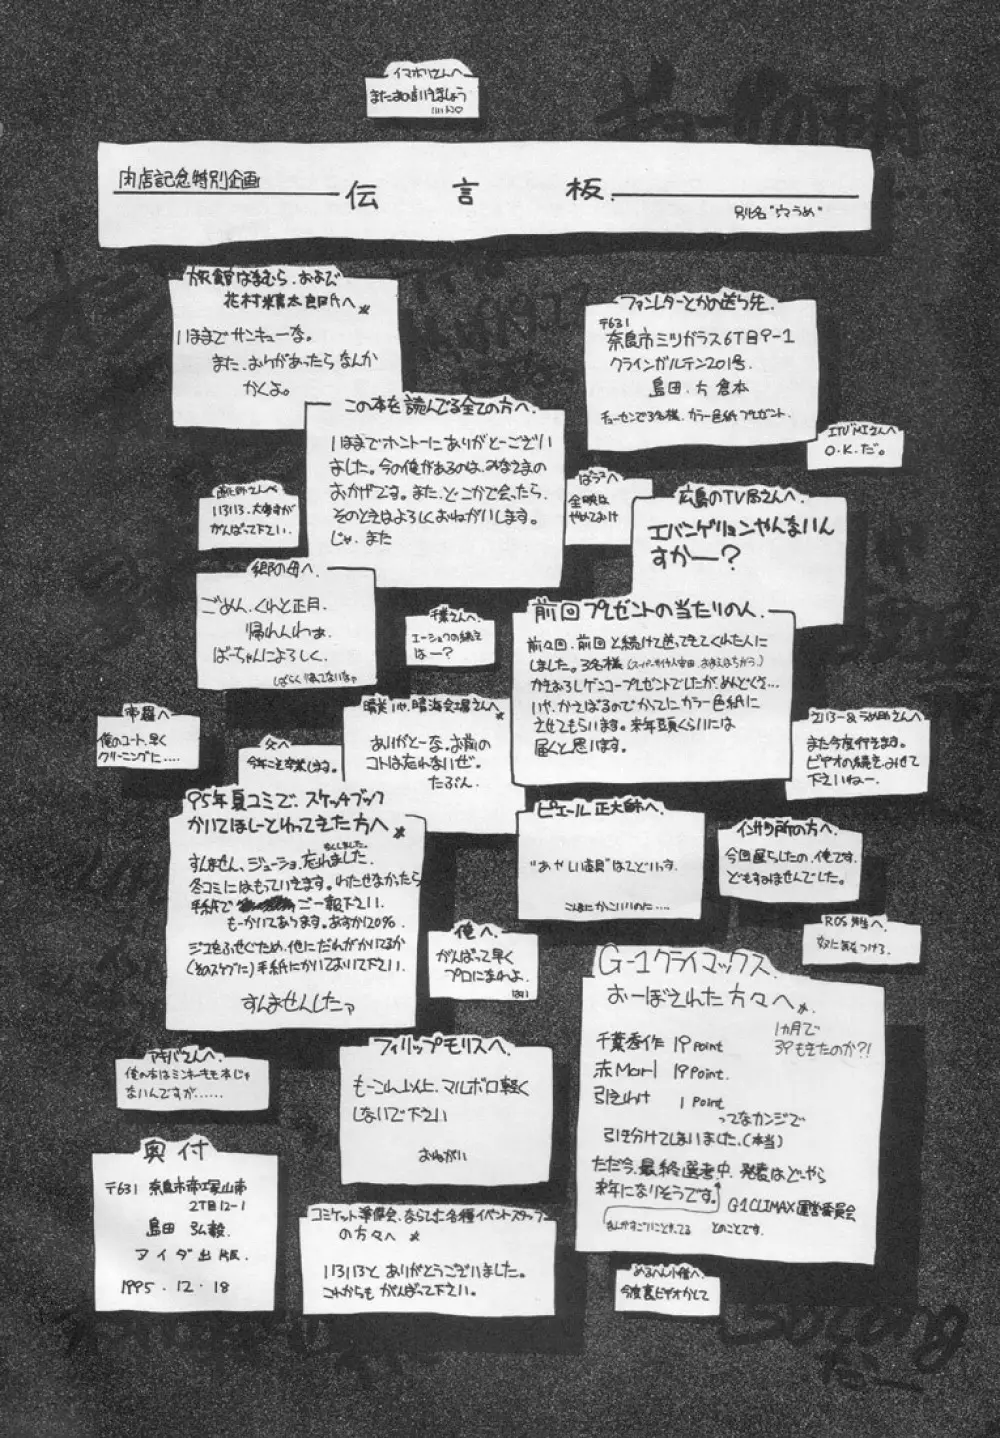 イマホリさんへ
またお会いしましょう
肉店記念特別企画
伝言板
別名"穴うめ"
旅館はまむら、および
花村
へ
いままでサンキューな。
また、おりがあったらなんか
かくよ。
ファンレターとかの送り先
〒631
奈良市三ツガラス6丁目9-1
クラインガルテン201号
島田 方 倉本
チューセンで3名様、カラー色紙プレゼント。
この本を読んでる全ての方へ
いままでホントーにありがとーござい
ました。今の俺があるのは、みなさまの
おかげです。また、どこかで会ったら、
そのときはよろしくおねがいします。
じゃ、また
さんへ
O.K.だ。
さんへ
いろいろ、大変すが
がんばって下さい。
へ
全映は
やめておけ
広島のTV局さんへ
エバンゲリョンやんないん
すかー？
郷の母へ
ごめん、くれと正月、
帰れんわぁ。
ばーちゃんによろしく。
しばらく帰ってないなァ
千葉さんへ
エーショウの続き
はー？
前回プレゼントの当たりの人
前々回、前回と続けて送ってきてくれた人に
しました。3名様
かきおろしゲンコープレゼントでしたが、めんどくさ…
いや、かさばるのでかってにカラー色紙に
させてもらいます。来年頭くらいには
届くと思います。
帝羅へ
俺のコート、早く
クリーニングに……
父へ
今年こそ卒業します。
晴美 いや、晴海会場さんへ
ありがとーな、お前の
コトは忘れないぜ。
たぶん。
さんへ
また今度行きます。
ビデオの続き、みせて
下さいねー。
95年夏コミで、スケッチブック
かいてほしーとわってきた方へ
すんません、ジューショ、忘れました。
冬コミにはもっていきます。わたせなかったら
手紙で
ご一報下さい。
もーかいてあります。あすか120%
ジコをふせぐため、他にだれがかいてるか
(そのスケブに)手紙にかいておいて下さい。
すんませんしたァ
ピエール正大師へ
"あやしい道具"はさどいっす。
こんなにかっこいいのに…
インサツ所の方へ
今回遅らしたの、俺です。
どもすみませんでした。
ROS
へ
奴に気をつけろ。
俺へ
がんばって早く
プロになれよ。
はい
G-1クライマックス
おーぼされた方々へ
1カ月で
39もきたのか?!
千葉秀作 19point
赤Mar1 19point
引きわけ 1point
ってなカンジで
引き分けてしまいました。(本当)
ただ今、最終選考中、発表はどーやら
来年になりそうです。
G-1CLIMAX運営委員会
とのことです。
アキバさんへ
俺の本はミンキーモモ本じゃ
ないんですが……
フィリップモリスへ
もーこれ以上、マルボロ軽く
しないで下さい
おねがい
奥付
〒631 奈良市帝塚山南
2丁目12-1
島田 弘毅
アイダ出版
1995.12.18
コミケット準備会、ならびに各種イベントスタッフ
の方々へ
いろいろと、ありがとうございました。
これからも がんばって下さい。
へ
今度裏ビデオかして